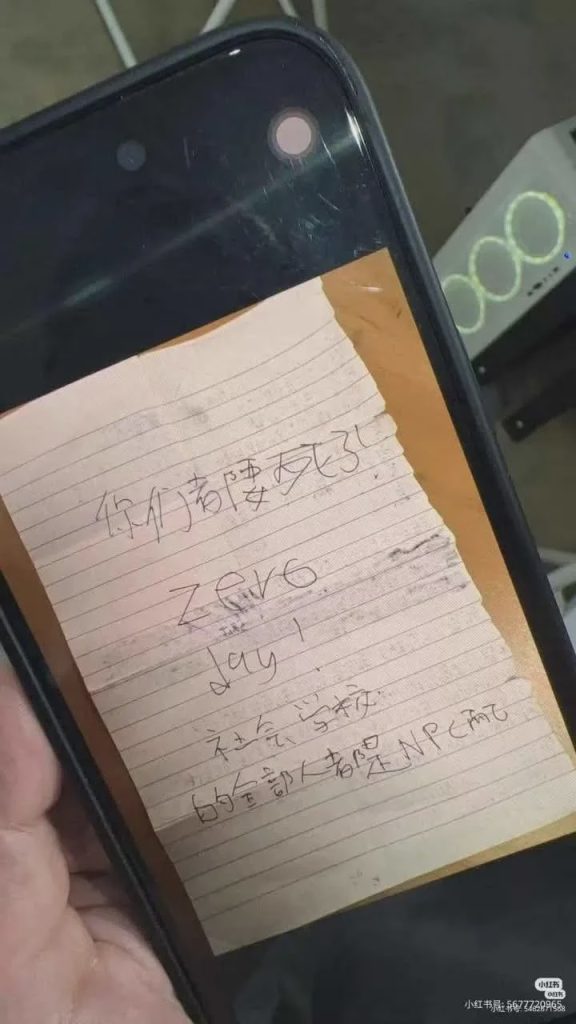 你们都要死了!
zero
day!
社会学校
的全部人都是NPC而已
小红书
小红书
小红书号: 5677720965
小红书号: